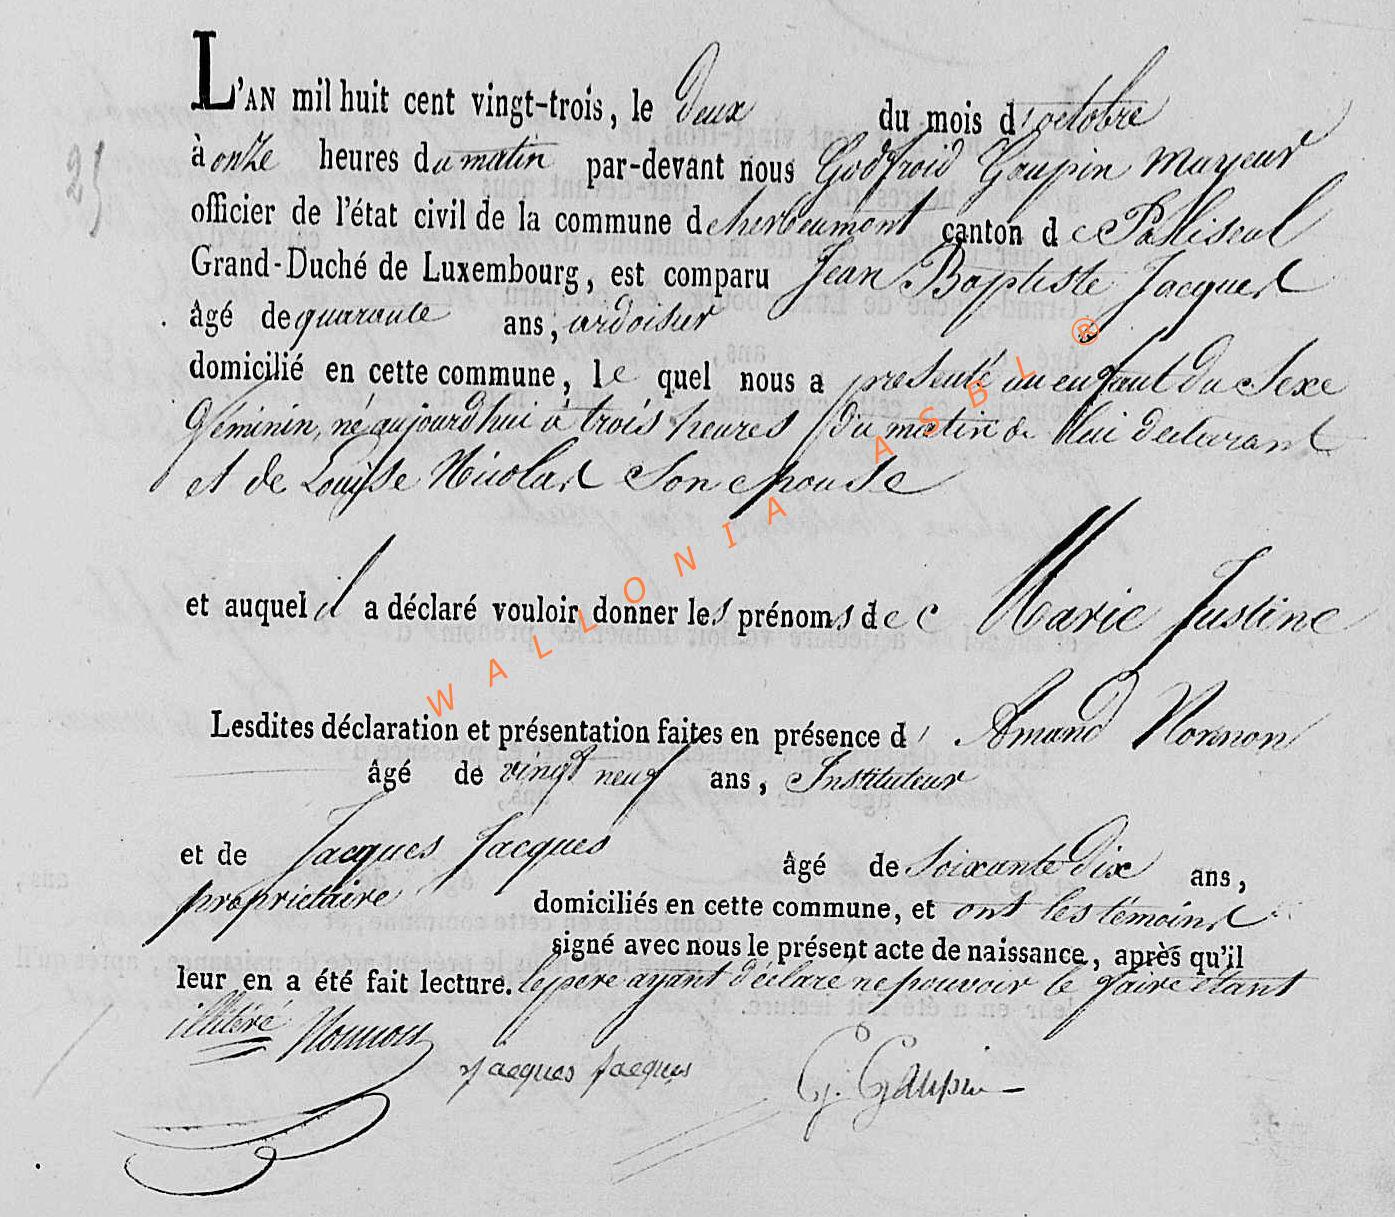 L'AN mil huit cent vingt-trois, le deux du mois d'octobre
25
à onze heures du matin par-devant nous Godfroid Gaupin Mayeur
officier de l'état civil de la commune de herbeumont canton de Paliseul
Grand-Duché de Luxembourg, est comparu Jean Baptiste Jacques
âgé de quarante ans, ardoisier
domicilié en cette commune, le quel nous a presenté un enfant du Sexe
féminin, né aujourd'hui à trois heures du matin de lui déclarant
et de Louyse Nicolas Son epouse
et auquel il a déclaré vouloir donner les prénoms de Marie Justine
Lesdites déclaration et présentation faites en présence d' Amand Nonnon
âgé de vingt neuf ans, Instituteur
et de Jacques Jacques âgé de Soixante dix ans,
propriétaire domiciliés en cette commune, et ont les témoins
signé avec nous le présent acte de naissance, après qu'il
leur en a été fait lecture. le pere ayant déclaré ne pouvoir le faire étant
illitéré Nonnon
Jacques Jacques G. Gaupin
WALLONIA ASBL ®